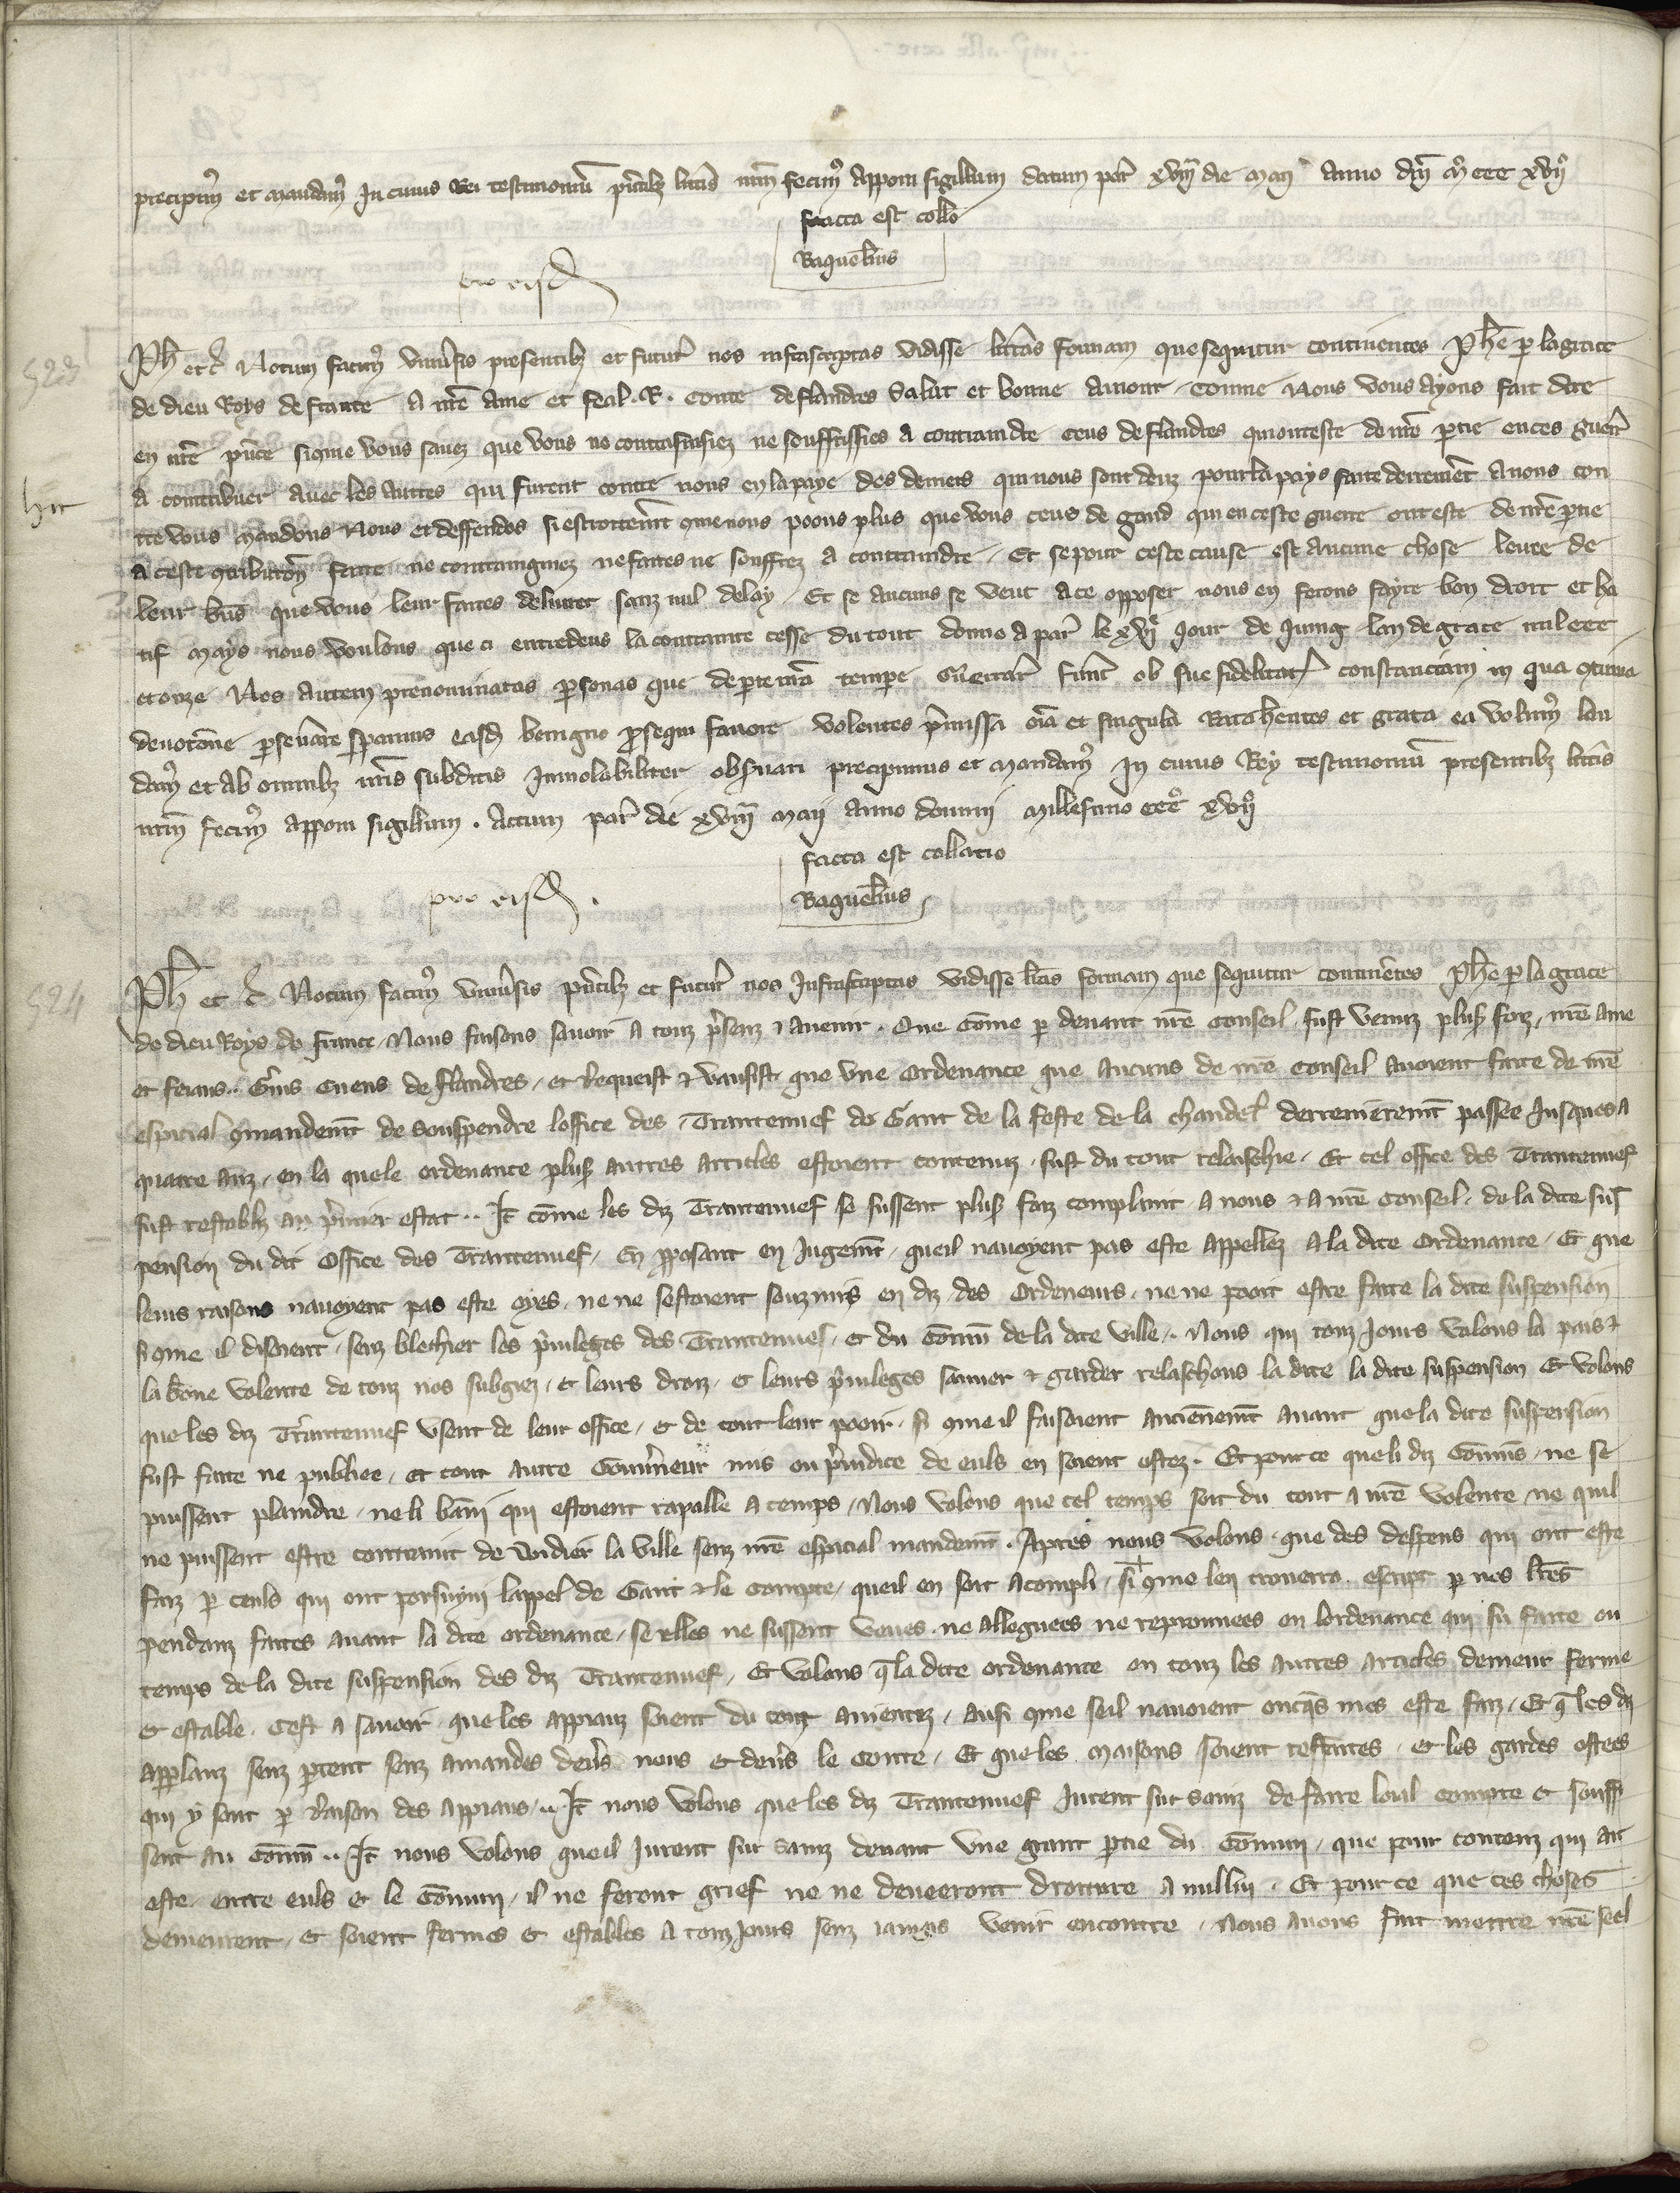 precipim⁹ et mandam⁹ In cuius Rei testimoniū pñtibȝ litt̃is nr̃m fecim⁹ Apponi sigillum datum par̃ xviij die maij Anno dñi m̊ ccc xvij̊
facta est coll̃o
Baguel̃ius
pro eisd̃
523
Ph̃ etc̃ Notum facim⁹ vniũsis presentibȝ et futur̃ nos infrascriptas vidisse litt̃as formam que sequitur continentes Phẽ p la grace
de dieu Roys de france A nr̃e Ame et feal . R . conte de flandres Salut et bonne Amour Comme Nous vous Ayons fait dire
en nr̃e pñce si q̃me vous savez que vous ne contrainsiez ne souffrissies a contraindre ceus de flandres qui ont este de nr̃e p̃tie en ces guerr̃
A contribuer Avec les Autres qui furent contre nous en la paye des deniers qui nous sont deuz pour la pays faite derrenier̃t Avons con
tre vous Mandons Nous et deffendos si estroitem̃t q̃me nous poons plus que vous ceus de gand qui en ceste guerre ont este de nr̃e p̃tie
hic
A ceste qtributiõn faire ne contraingniez ne faites ne souffrez a contraindre Et se pour ceste cause est Aucune chose levee de
leur biẽs que vous leur faites deliurer sanz nul delay Et se Aucuns se veut a ce opposer nous en ferons fayre bon droit et ha
tif Mays nous voulons que ci entredeus la contrainte cesse du tout donne a par̃ le xvi͛ jour de Juing lan de grace mil ccc
et onze Nos Autem prenominatas p̃sonas que de parte nr̃a tempe Gũerrar̃ fũnt ob sue fidelitat̃ constanciam in qua qtinua
devotõne p̃seũare speramus easd̃ benigno p̃sequi favore volentes p̃missa oĩa et singula Rata h̃entes et grata ea volum⁹ lau
dam⁹ et Ab omnibȝ nr̃is subditis Inviolabiliter obs̃uari precipimus et Mandam⁹ In cuius Rey testimoniũ presentibȝ litt̃is
nr̃m fecim⁹ Apponi sigillum . Actum par̃ die xviij Maij Anno domini Millesimo ccc̊ xvij̊
facta est collatio
Baguel̃ius
pro eisd̃ .
524
Ph̃ et c̃ Notum facim⁹ vniũsis pñtibȝ et futur̃ nos Infrascriptas vidisse litt̃as formam que sequitur continẽtes Phẽ p la grace
de dieu Roys de france Nous faisons savoir A touz p̃senz ⁊ avenir . Que Cõme p devant nr̃e Conseil fust venuz plus⁹ foiz nr̃e ame
et feiaus .. Cuens de flandres et Requeist ⁊ vausist que vne Ordenance que Aucuns de nr̃e Conseil Avoient faite de nr̃e
especial q̃mandem̃t de souspendre loffice des Trantenuef de Gant de la feste de la chandel̃ derrenierem̃t passee Jusques A
quatre anz en la quele ordenance plus⁹ autres articles estoient contenuz fust du tout relaschie Et cel office des Trantenuef
fust restabliz au p̃mier estat .. It̃ cõme les diz Trantenuef se fussent plus⁹ foiz complaint A nous ⁊ A nr̃e Conseil de la dite sus
pension du dit Office des Trantenuef En p̃posant en Jugem̃t queil navoyent pas este Appellez A la dite Ordenance Et que
leurs raisons navoyent pas este oyes ne ne sestoient souzmis en diz des Ordeneurs ne ne pooit estre faite la dite suspension
si q̃me il disoient senz blechier les p̃uileges des Trantenuef et du Cõmũ de la dite ville . Nous qui touz jours volons la pais ⁊
la bõne volente de touz nos subgiez et leurs droiz et leurs p̃uileges sauver ⁊ garder relaschons la dite la dite suspension Et volons
que les diz Trantenuef vsent de leur office et de tout leur pooir si q̃me il faisoient Anciennem̃t Avant que la dite suspension
fust faite ne publiee et tout Autre Gouũneur mis ou p̃iudice de euls en soient ostez . Et pour ce que li diz Cõmũs ne se
puissent plaindre ne li bãni qui estoient rapalle A temps Nous volons que cel temps soit du tout A nr̃e volente ne quil
ne puissent estre contraint de Vuidier la ville senz nr̃e especial mandem̃t . Apres nous volons que des despens qui ont este
faiz p ceuls qui ont porsuyui lappel de Gant ⁊ le compte queil en soit acompli si q̃me len trouerra escript p nos l̃res
pendanz faites avant la dite ordenance se elles ne fussent veues ne alleguees ne reprouuees en lordenance qui fu faite ou
temps de la dite suspension des diz Trantenuef Et volons q̃ la dite ordenance en touz les autres articles demeur ferme
et estable Cest A savoir que les appiauz soient du tout Anientez Ausi q̃me seil navoient onq̃s mes este faiz Et q̃ les diz
appellanz senz p̃tent senz Amandes deũs nous et deũs le Conte Et que les maisons soient reffaites et les gardes ostees
qui y sont p raison des Appiaus .. It̃ nous volons que les diz Trantenuef Jurent sur sainz de faire loial compte et souffi
sent au Cõmũ .. It̃ nous volons queil Jurent sur sainz devant vne grant p̃tie du Cõmun que pour contenz qui ait
este entre euls et le Cõmun il ne feront grief ne ne deneeront droiture A nullui . Et pour ce que ces choses
demeurent et soient fermes et estables A touz Jours senz iamais venir encontre Nous avons fait mettre nr̃e seel